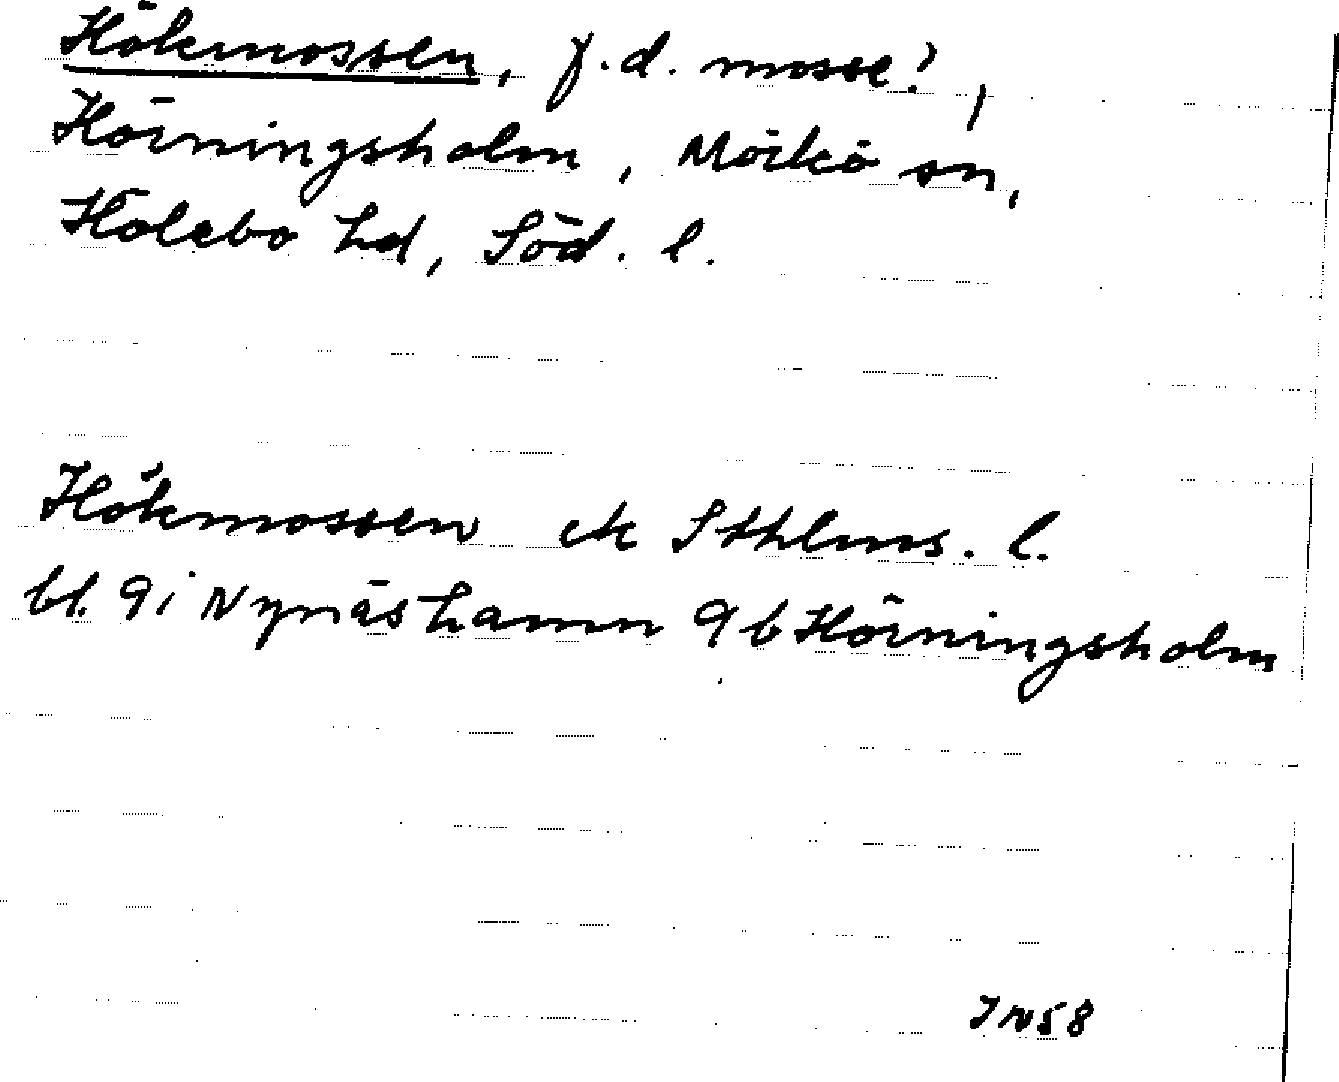 Hökmossen, f.d. mosse?,
Hörningsholm, Mörkö sn,
Hölebo hd, Söd. l.
Hökmossen ek Sthlms. l.
bl. 9i Nynäshamn 9b Hörningsholm
IN58